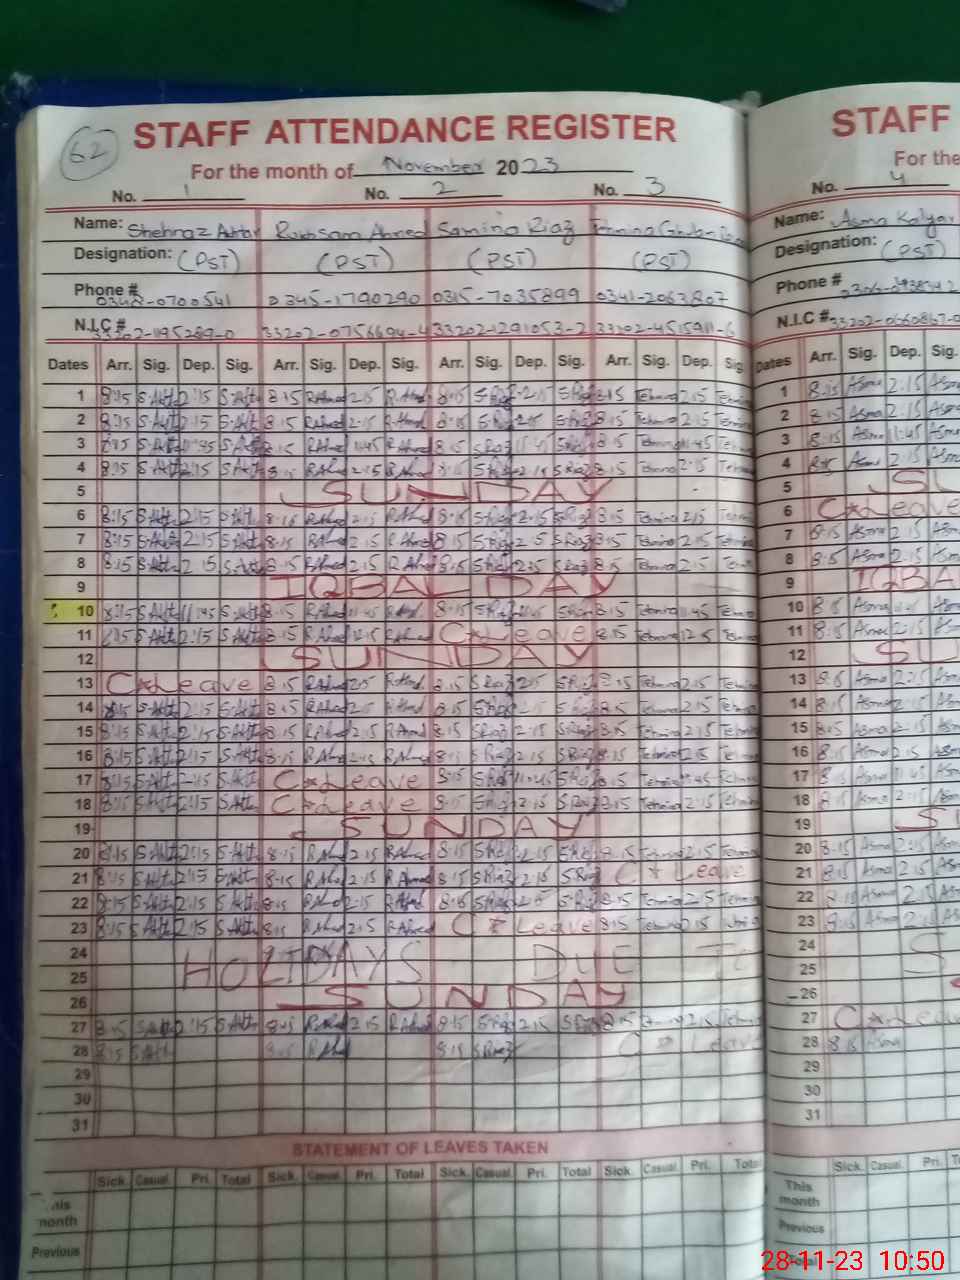 62
STAFF ATTENDANCE REGISTER
For the month of November 2023
No. 1 No. 2 No. 3
Name: Shehnaz Akhtar Rukhsam Ahmed Samina Riaz
Designation: (PST) (PST) (PST) (PST)
Phone # 0348-0700541 0345-1790290 0315-7035899 0341-2063807
N.I.C # 33202-1195289-0 33202-0756694-4 33202-1291053-2
Dates Arr. Sig. Dep. Sig. Arr. Sig. Dep. Sig. Arr. Sig. Dep. Sig. Arr. Sig. Dep. Sig.
1 8:15 S.Akt 2:15 S.Akt 8:15 R.Ahmd 2:15 R.Ahmd 8:15 S.Riaz 2:15 S.Riaz 8:15 Tehmina 2:15
2 8:15 S.Akt 2:15 S.Akt 8:15 R.Ahmd 2:15 R.Ahmd 8:15 S.Riaz 2:15 S.Riaz 8:15 Tehmina 2:15
3 S.Akt 11:45 S.Akt 8:15 R.Ahmd 11:45 R.Ahmd 8:15 S.Riaz 11:45 S.Riaz 8:15 Tehmina 11:45
4 8:15 S.Akt 2:15 S.Akt 8:15 R.Ahmd 2:15 R.Ahmd 8:15 S.Riaz 2:15 S.Riaz 8:15 Tehmina 2:15
5 SUNDAY
6 8:15 S.Akt 2:15 S.Akt 8:15 R.Ahmd 2:15 R.Ahmd 8:15 S.Riaz 2:15 S.Riaz 8:15 Tehmina 2:15
7 8:15 S.Akt 2:15 S.Akt 8:15 R.Ahmd 2:15 R.Ahmd 8:15 S.Riaz 2:15 S.Riaz 8:15 Tehmina 2:15
8 8:15 S.Akt 2:15 S.Akt 8:15 R.Ahmd 2:15 R.Ahmd 8:15 S.Riaz 2:15 S.Riaz 8:15 Tehmina 2:15
9 IQBAL DAY
10 8:15 S.Akt 11:45 S.Akt 8:15 R.Ahmd 11:45 8:15 S.Riaz S.Riaz 8:15 Tehmina 11:45
11 S.Akt 2:15 S.Akt 8:15 R.Ahmd R.Ahmd C*Leave 8:15 Tehmina
12 SUNDAY
13 C*Leave 8:15 R.Ahmd 2:15 R.Ahmd 8:15 S.Riaz 2:15 S.Riaz 8:15 Tehmina 2:15
14 8:15 S.Akt 2:15 S.Akt 8:15 R.Ahmd 2:15 R.Ahmd 8:15 S.Riaz 2:15 S.Riaz 8:15 Tehmina 2:15
15 8:15 S.Akt 2:15 S.Akt 8:15 R.Ahmd 2:15 R.Ahmd 8:15 S.Riaz 2:15 S.Riaz 8:15 Tehmina 2:15
16 8:15 S.Akt 2:15 S.Akt 8:15 R.Ahmd 2:15 R.Ahmd 8:15 S.Riaz 2:15 S.Riaz 8:15 Tehmina 2:15
17 8:15 S.Akt 2:15 S.Akt C*Leave 8:15 S.Riaz 11:45 S.Riaz 8:15 Tehmina 11:45
18 8:15 S.Akt 2:15 S.Akt C*Leave 8:15 S.Riaz 2:15 S.Riaz 8:15 Tehmina 2:15
19 SUNDAY
20 8:15 S.Akt 2:15 S.Akt 8:15 R.Ahmd 2:15 R.Ahmd 8:15 S.Riaz 2:15 S.Riaz 8:15 Tehmina 2:15
21 8:15 S.Akt 2:15 S.Akt 8:15 R.Ahmd 2:15 R.Ahmed 8:15 S.Riaz 2:15 S.Riaz C*Leave
22 8:15 S.Akt 2:15 S.Akt 8:15 R.Ahmd 2:15 R.Ahmd 8:15 S.Riaz 2:15 S.Riaz 8:15 Tehmina 2:15
23 8:15 S.Akt 2:15 S.Akt 8:15 R.Ahmd 2:15 R.Ahmed C*Leave 8:15 Tehmina 2:15
24
25 HOLIDAYS DUE To
26 SUNDAY
27 8:15 S.Akt 2:15 S.Akt 8:15 R.Ahmd 2:15 R.Ahmd 8:15 S.Riaz 2:15 S.Riaz 8:15 2:15
28 8:15 S.Akt 8:15 R.Ahmd 8:15 S.Riaz C*Leave
29
30
31
STATEMENT OF LEAVES TAKEN
Sick. Casual. Pri. Total Sick. Casual. Pri. Total Sick. Casual. Pri. Total Sick. Casual. Pri. Total
month
Previous
STAFF
For the
No. 4
Name: Asma Kalyar
Designation: (PST)
Phone #
N.I.C #
Dates Arr. Sig. Dep. Sig.
1 8:15 Asma 2:15 Asma
2 8:15 Asma 2:15 Asma
3 8:15 Asma 11:45 Asma
4 8:15 Asma 2:15 Asma
5 SU
6 C*Leave
7 8:15 Asma 2:15 Asma
8 8:15 Asma 2:15 Asma
9 IQBA
10 8:15 Asma
11 8:15 Asma 2:15
12 SU
13 8:15 Asma 2:15 Asma
14 8:15 Asma 2:15
15 8:15 Asma 2:15
16 8:15 Asma 2:15
17 Asma 11:45
18 8:15 Asma 2:15
19 S
20 8:15 Asma 2:15
21 8:15 Asma 2:15
22 8:15 Asma 2:15
23 8:15 Asma 2:15
24
25
26
27 C*Leave
28 8:15 Asma
29
30
31
Sick. Casual. Pri.
This month
Previous
Total
28-11-23 10:50